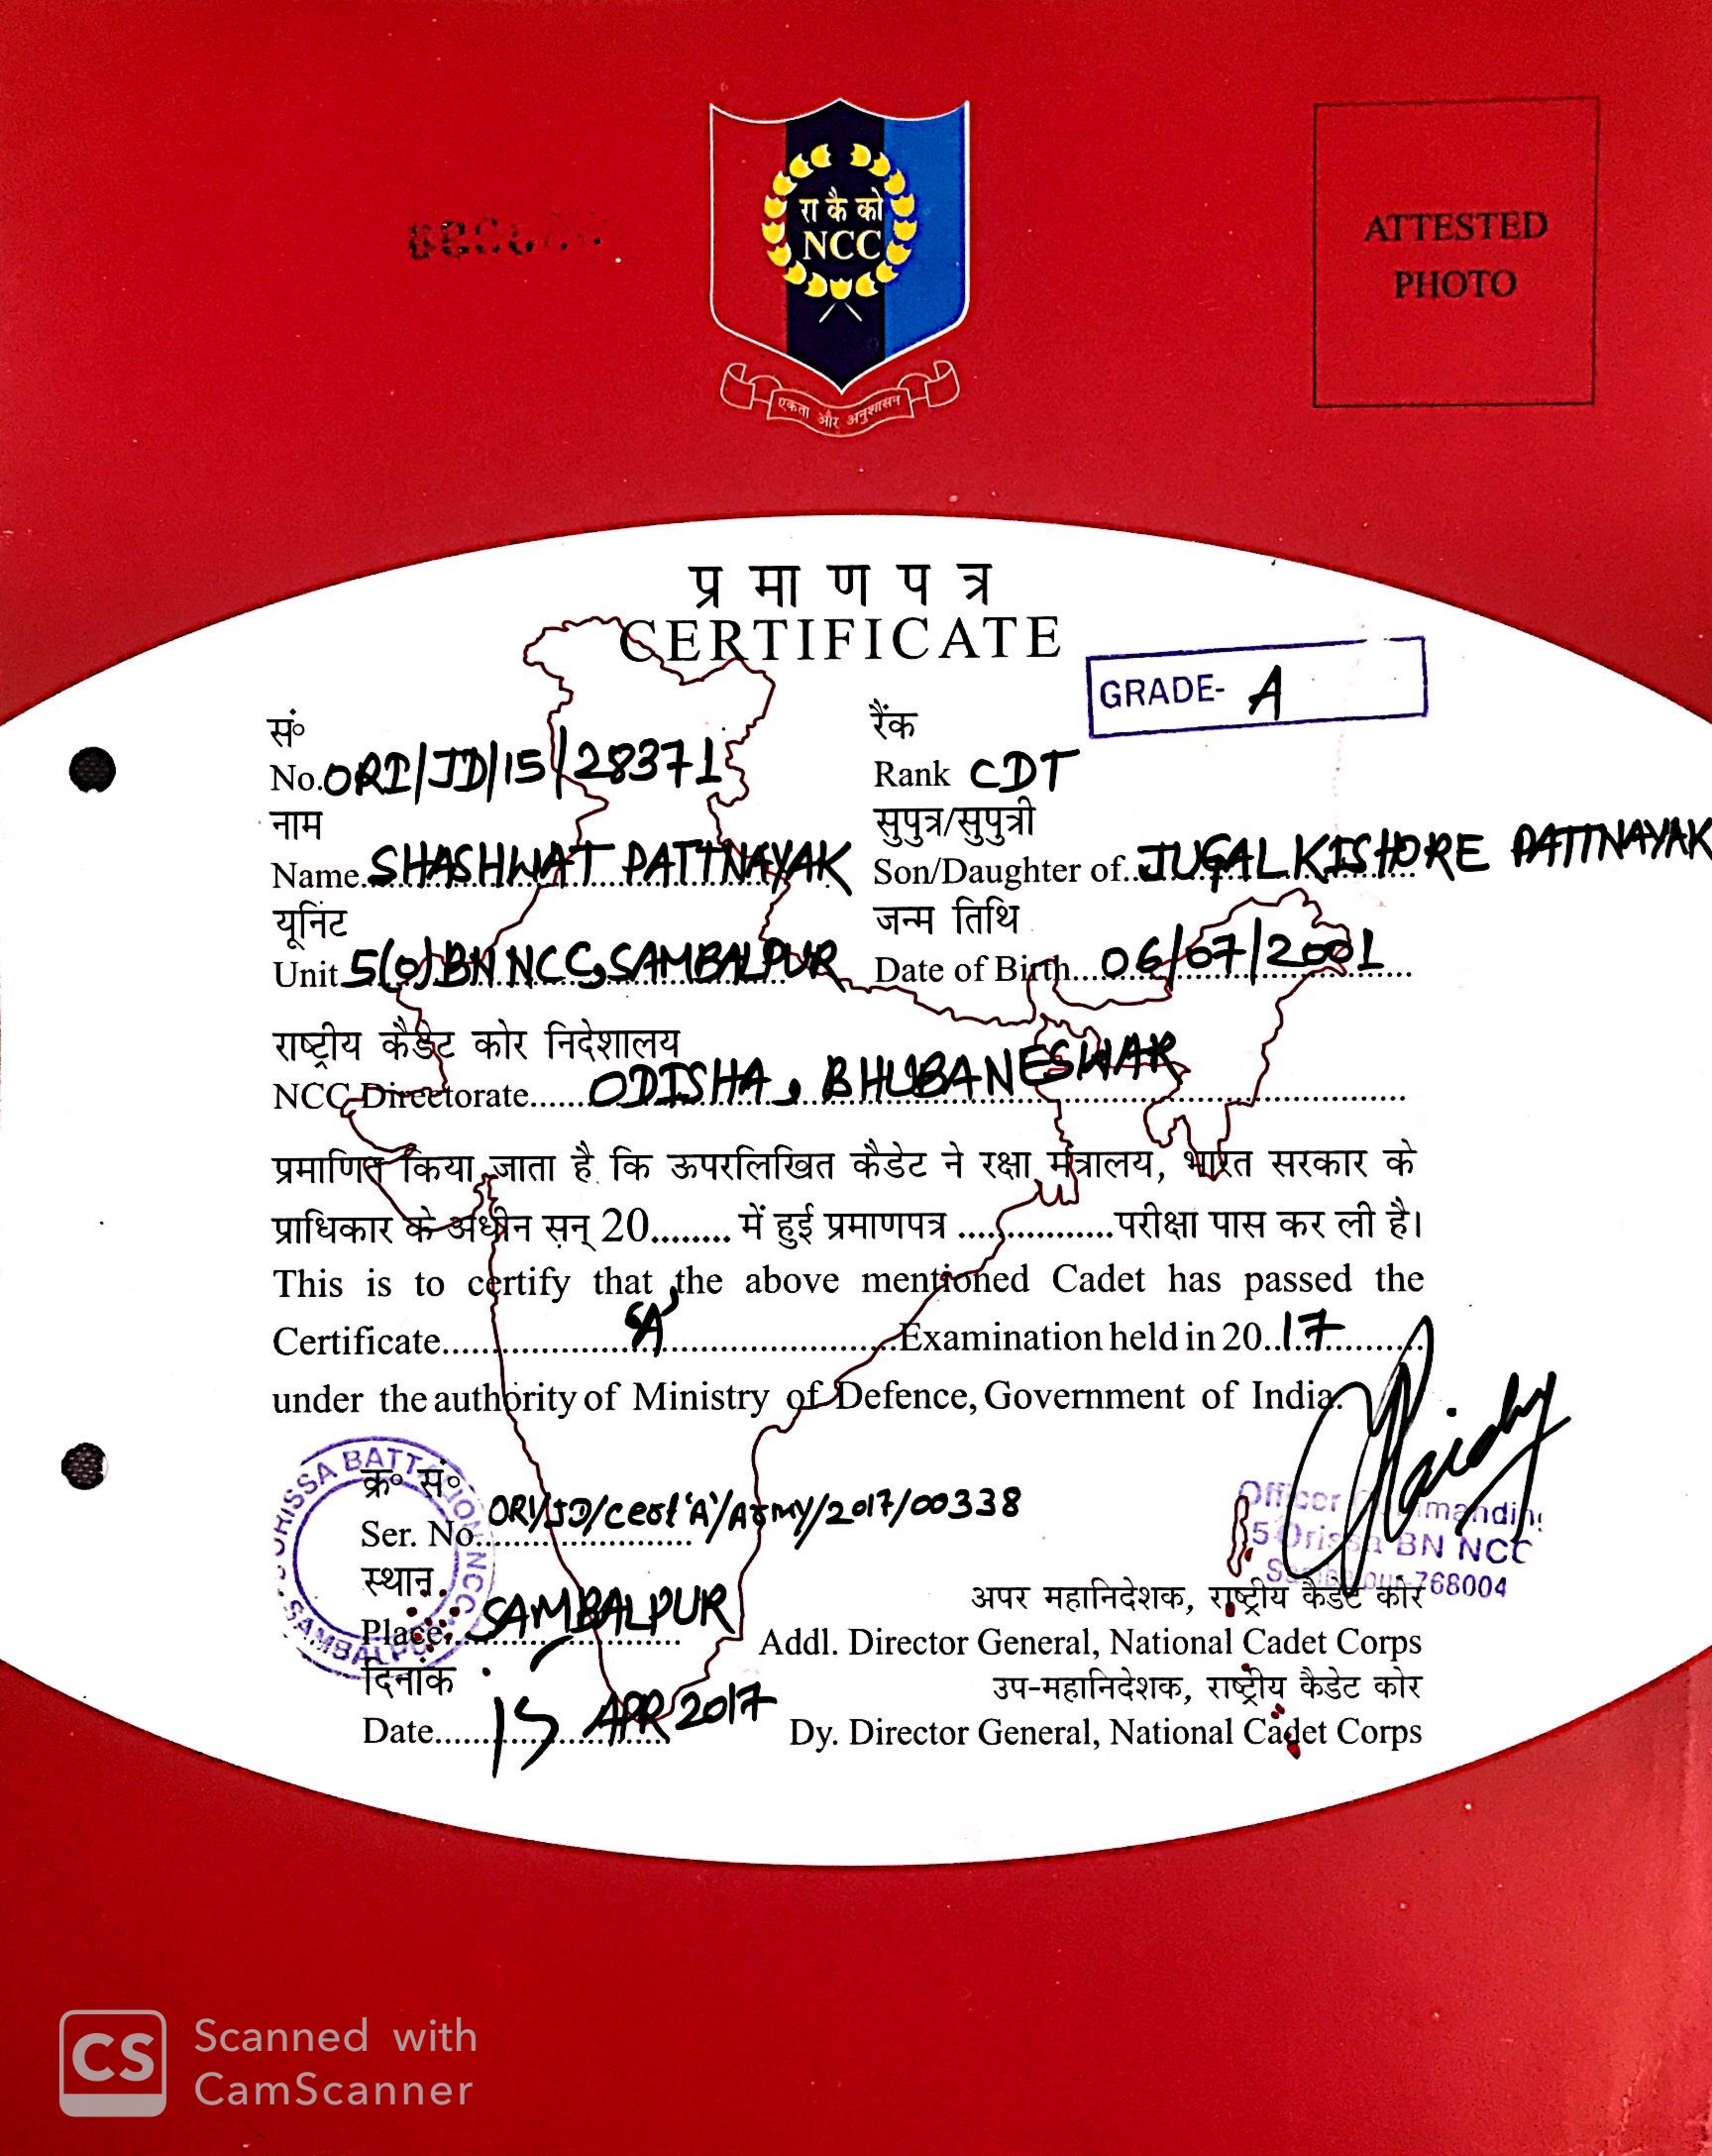 रा कै को
NCC
एकता और अनुशासन
ATTESTED
PHOTO
प्र मा ण प त्र
CERTIFICATE
GRADE- A
सं०
No. ORI/JD/15/28371
रैंक
Rank CDT
नाम
Name SHASHWAT PATTNAYAK
सुपुत्र/सुपुत्री
Son/Daughter of.. JUGAL KISHORE PATTNAYAK
यूनिट
Unit 5(O) BN NCC, SAMBALPUR
जन्म तिथि
Date of Birth... 06/07/2001
राष्ट्रीय कैडेट कोर निदेशालय
NCC Directorate...... ODISHA, BHUBANESWAR
प्रमाणित किया जाता है कि ऊपरलिखित कैडेट ने रक्षा मंत्रालय, भारत सरकार के
प्राधिकार के अधीन सन् 20........ में हुई प्रमाणपत्र ................परीक्षा पास कर ली है।
This is to certify that the above mentioned Cadet has passed the
Certificate.................... 'A' ....................Examination held in 20..17..........
under the authority of Ministry of Defence, Government of India.
ORISSA BATTALION NCC
SAMBALPUR
क्र० सं०
Ser. No. ORI/JD/Cert 'A'/Army/2017/00338
स्थान
Place SAMBALPUR
दिनांक
Date...... 15 APR 2017
Officer Commanding
5 Orissa BN NCC
Sambalpur-768004
अपर महानिदेशक, राष्ट्रीय कैडेट कोर
Addl. Director General, National Cadet Corps
उप-महानिदेशक, राष्ट्रीय कैडेट कोर
Dy. Director General, National Cadet Corps
CS Scanned with
CamScanner